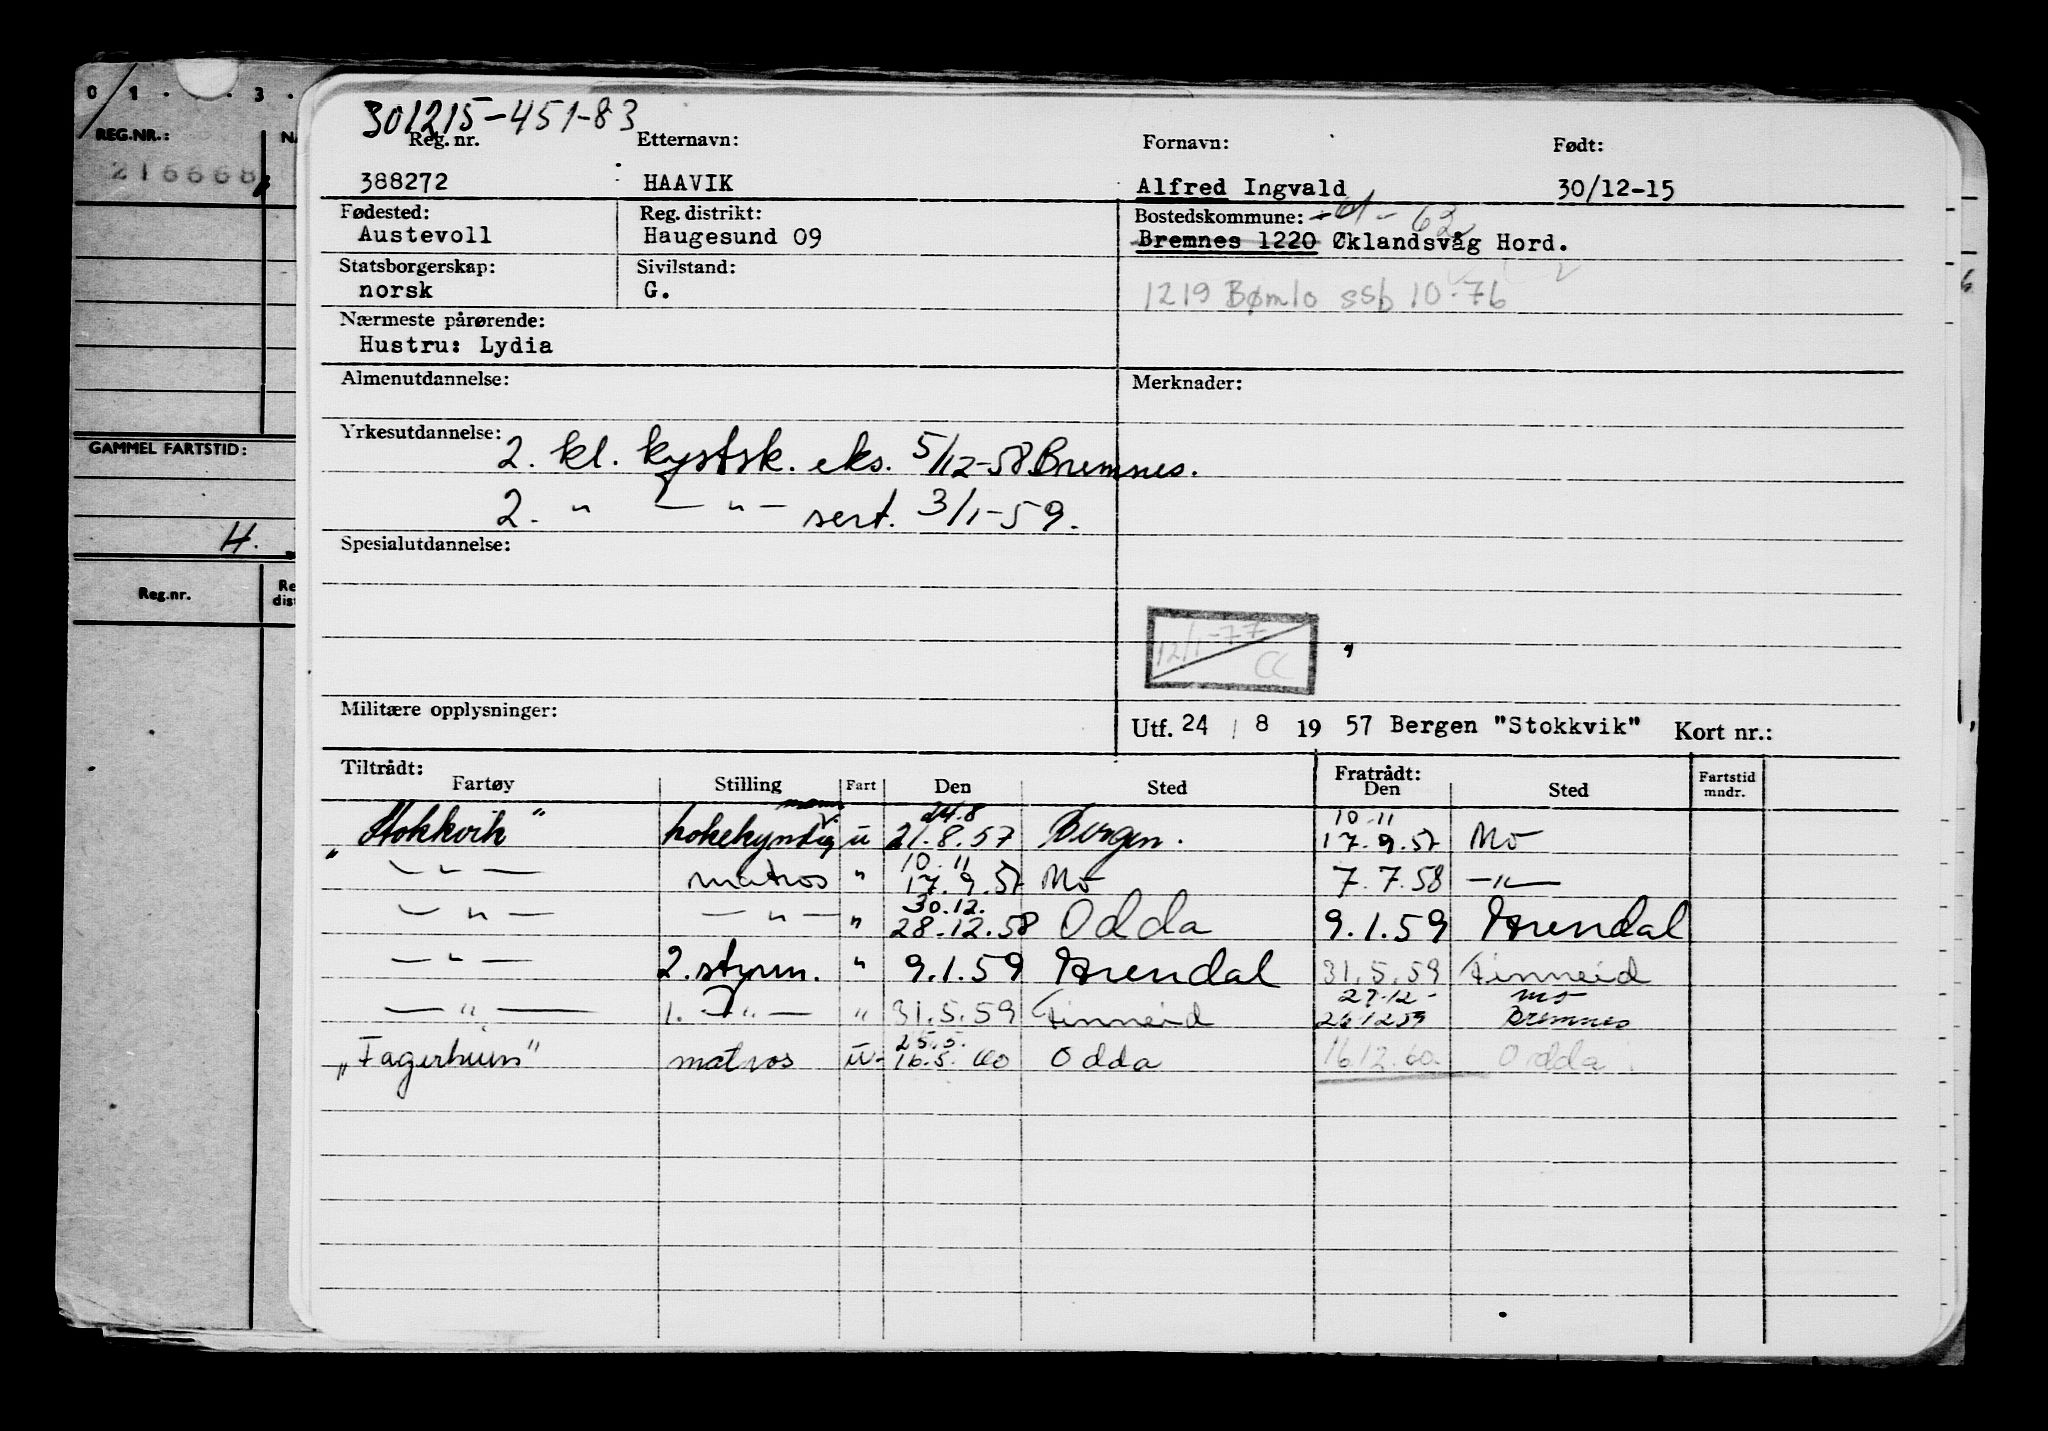 0 1 . . 3 .
REG.NR.:
216668
GAMMEL FARTSTID:
H.
Reg.nr.
301215-451-83
Reg. nr. Etternavn: Fornavn: Født:
388272 HAAVIK Alfred Ingvald 30/12-15
Fødested: Reg. distrikt: Bostedskommune:
Austevoll Haugesund 09 Bremnes 1220 Øklandsvåg Hord.
Statsborgerskap: Sivilstand:
norsk G. 1219 Bømlo ssb 10-76
Nærmeste pårørende:
Hustru: Lydia
Almenutdannelse: Merknader:
Yrkesutdannelse: 2. kl. kystsk. eks. 5/12-58 Bremnes.
2. " — " — sert. 3/1-59.
Spesialutdannelse:
12/1-77
CC
Militære opplysninger:
Utf. 24 / 8 19 57 Bergen "Stokkvik" Kort nr.:
Tiltrådt: Fratrådt: Fartstid
Fartøy Stilling Fart Den Sted Den Sted mndr.
24.8 10.11
"Stokkvik" kokekyndig u 21.8.57 Bergen. 17.9.57 Mo
10.11
— " — matros " 17.9.57 Mo 7.7.58 — " —
30.12.
— " — — " — " 28.12.58 Odda 9.1.59 Arendal
— " — 2. styrm. " 9.1.59 Arendal 31.5.59 Finneid
27.12- Mo
— " — 1. — " — " 31.5.59 Finneid 26.12.59 Bremnes
25.5.
"Fagerhun" matros u- 16.5.60 Odda 16.12.60. Odda.